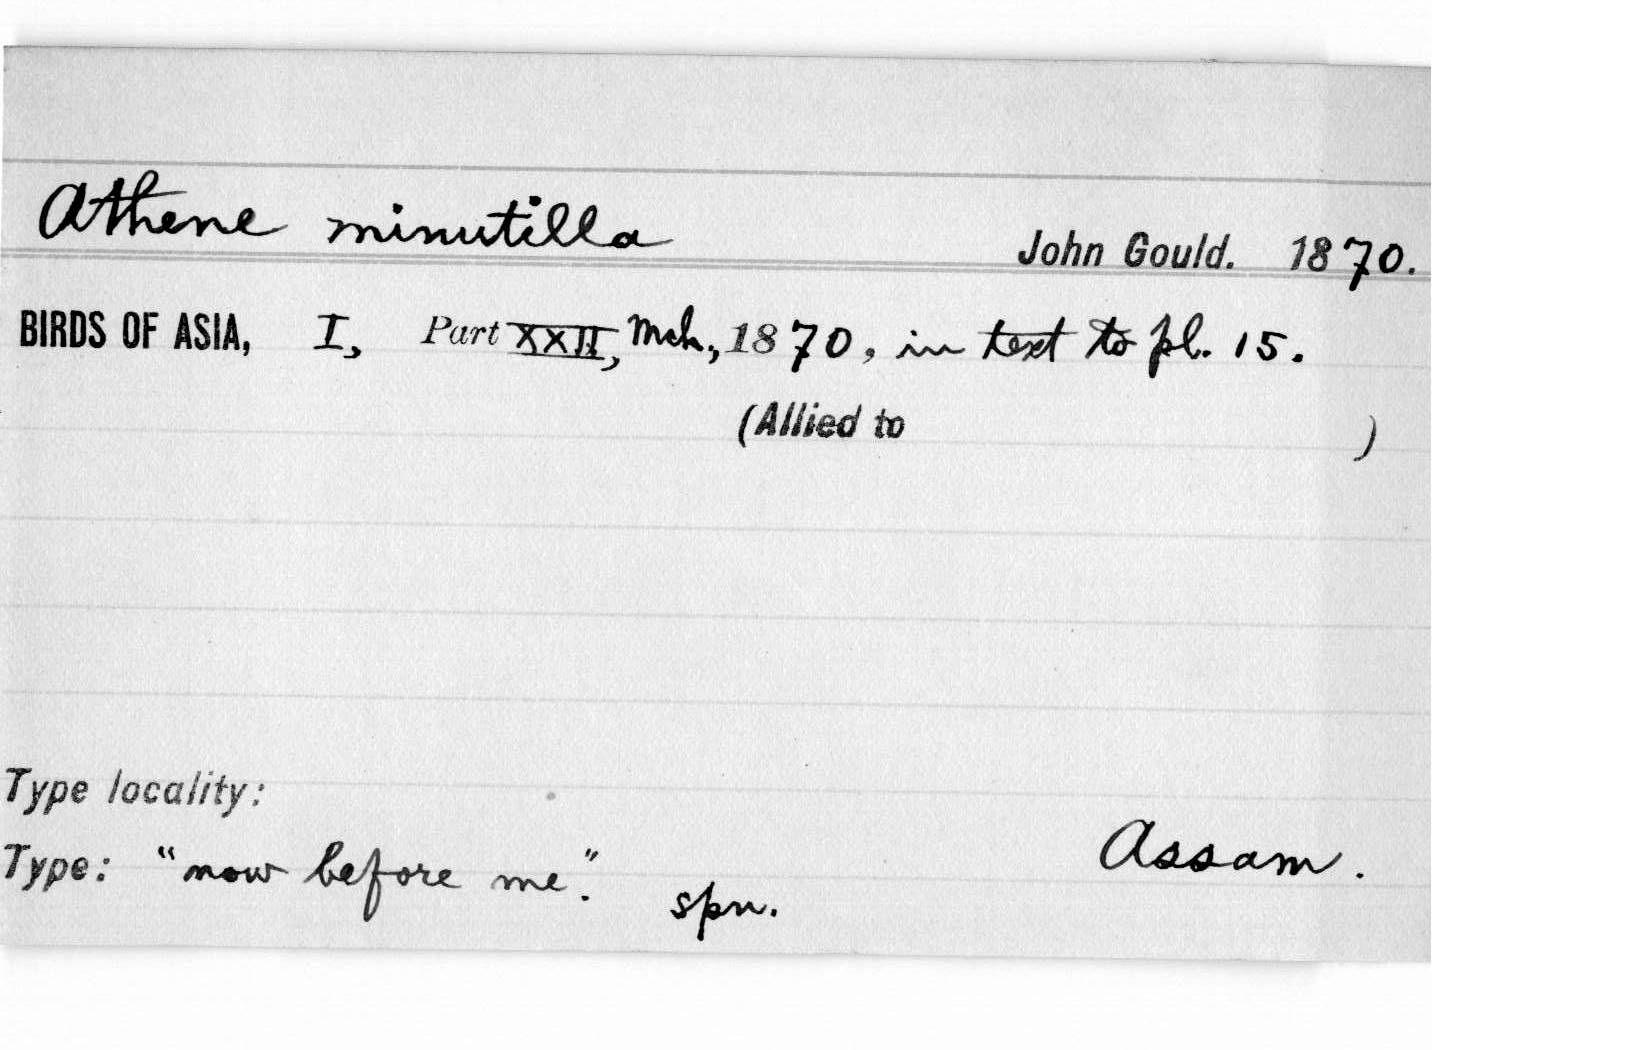 Athene minutilla John Gould. 1870.
BIRDS OF ASIA, I, Part XXII, Mch., 1870, in text to pl. 15.
(Allied to )
Type locality:
Assam.
Type: "now before me." spn.